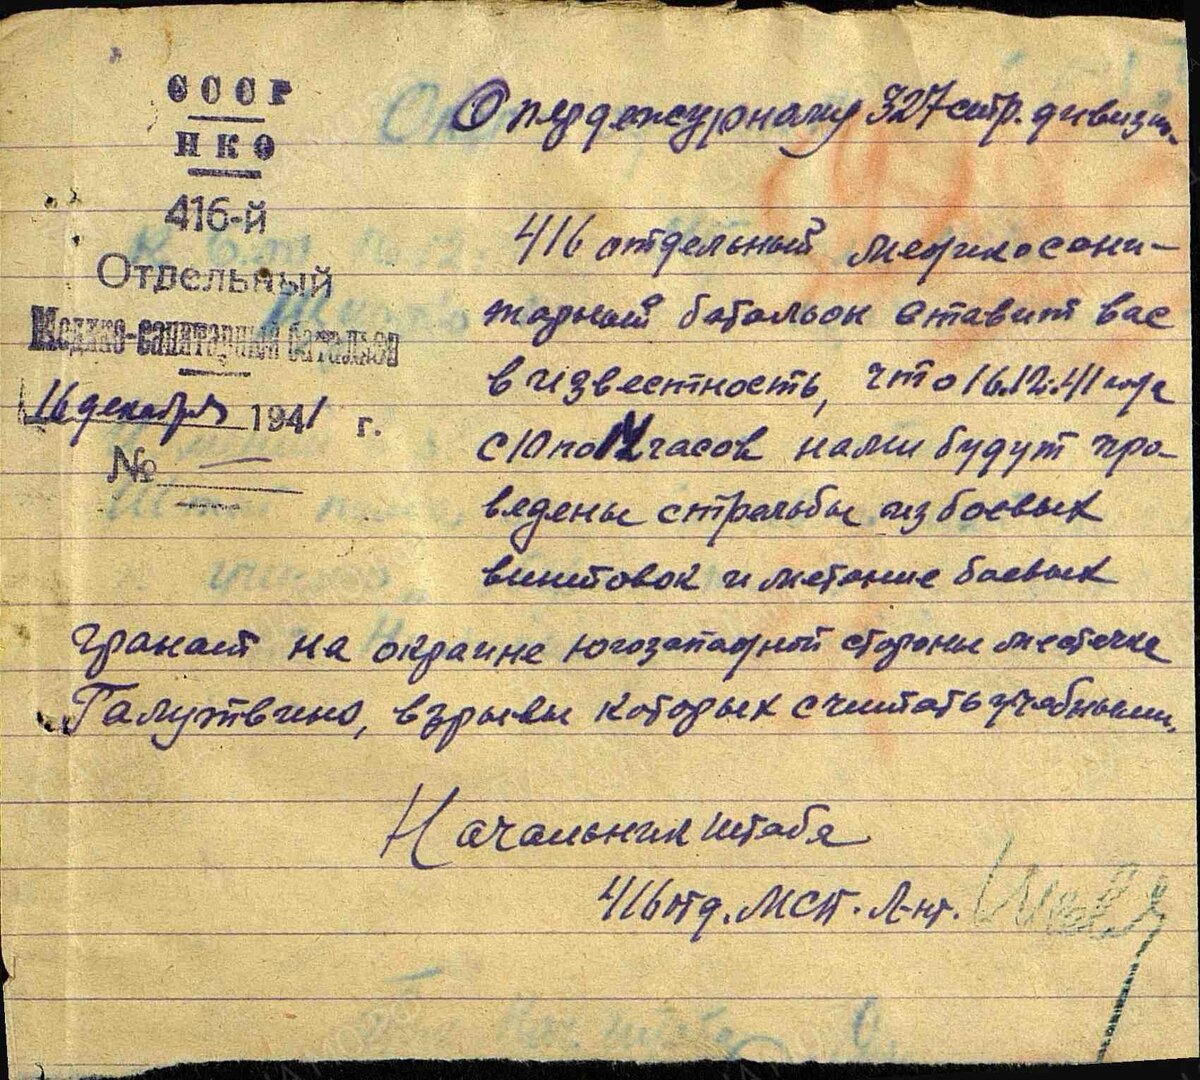 СССР
НКО
416-й
Отдельный
Медико-санитарный батальон
16 декабря 1941 г.
№
Опердежурному 327 стр. дивизии
416 отдельный медикосани-
тарный батальон ставит вас
в известность, что 16.12.41 года
с 10 по часов нами будут про-
ведены стрельбы из боевых
винтовок и метание боевых
гранат на окраине югозападной стороны местечка
Галутвино, взрывы которых считать учебными.
Начальник штаба
416 отд. МСП. Л-нт.